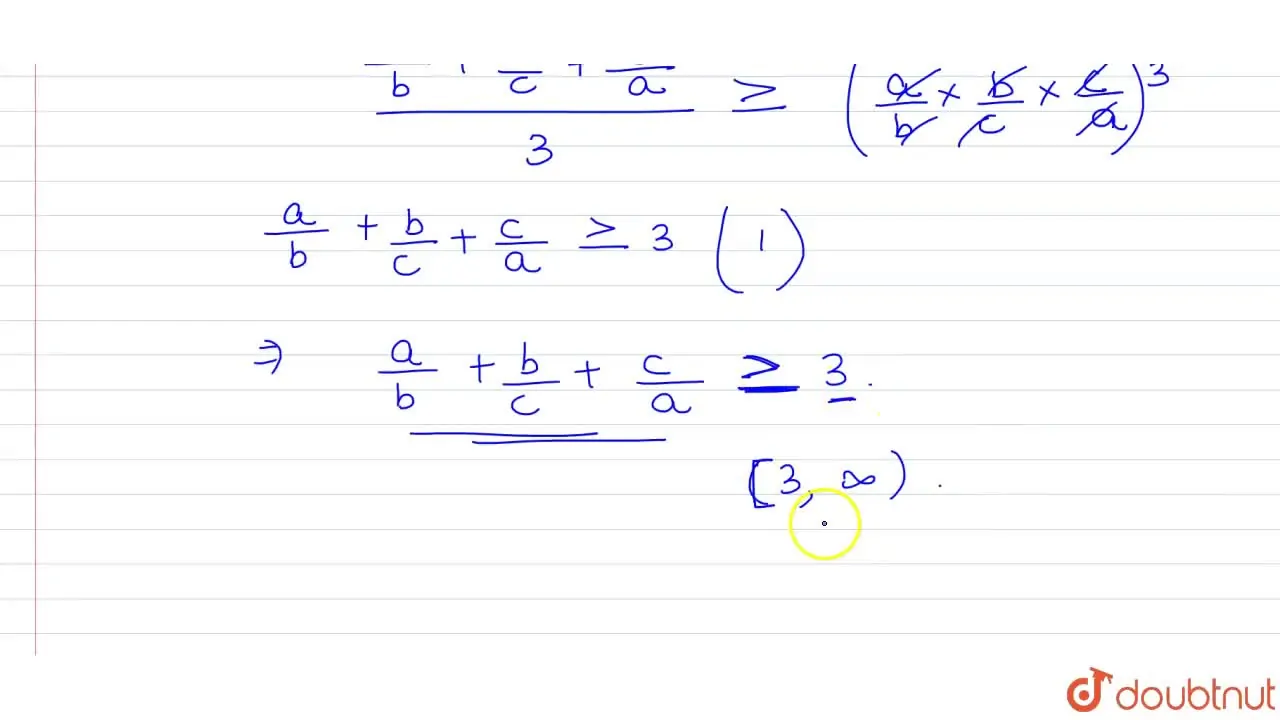 b + c + a ≥ (a/b × b/c × c/a)^3
3
a/b + b/c + c/a ≥ 3 (1)
⇒ a/b + b/c + c/a ≥ 3.
[3, ∞).
doubtnut